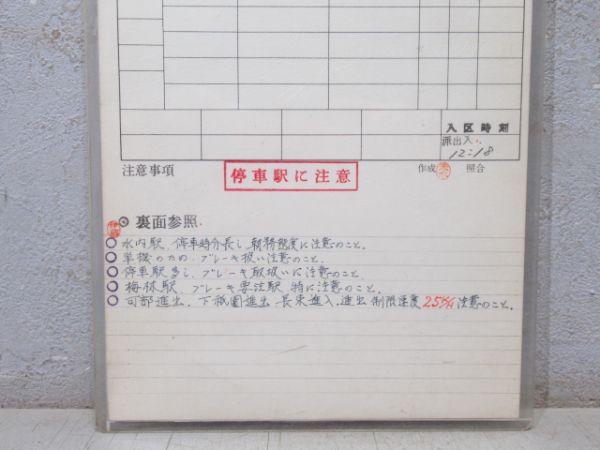 入区時刻
派出入
12:18
注意事項
停車駅に注意
作成
照合
◎裏面参照.
○水内駅、停車時分長し、執務態度に注意のこと。
○単機のため、ブレーキ扱い注意のこと。
○停車駅多し、ブレーキ取扱いに注意のこと。
○梅林駅、ブレーキ要注駅 特に注意のこと。
○可部進出、下祇園進出 長束進入、進出 制限速度 25㎞/H 注意のこと。